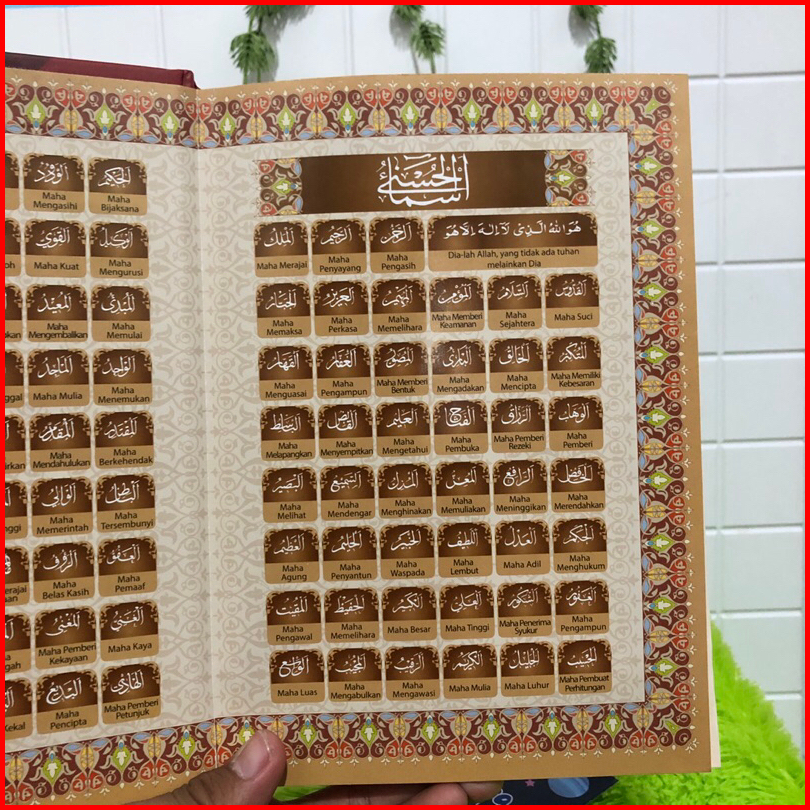 الأسماء الحسنى
هُوَ اللهُ الَّذِى لَآ اِلٰهَ اِلَّا هُوَ
Dia-lah Allah, yang tidak ada tuhan
melainkan Dia
الرَّحْمٰنُ
Maha
Pengasih
الرَّحِيْمُ
Maha
Penyayang
الْمَلِكُ
Maha Merajai
الْقُدُّوْسُ
Maha Suci
السَّلَامُ
Maha
Sejahtera
الْمُؤْمِنُ
Maha Memberi
Keamanan
الْمُهَيْمِنُ
Maha
Memelihara
الْعَزِيْزُ
Maha
Perkasa
الْجَبَّارُ
Maha
Memaksa
الْمُتَكَبِّرُ
Maha Memiliki
Kebesaran
الْخَالِقُ
Maha
Mencipta
الْبَارِئُ
Maha
Mengadakan
الْمُصَوِّرُ
Maha Memberi
Bentuk
الْغَفَّارُ
Maha
Pengampun
الْقَهَّارُ
Maha
Menguasai
الْوَهَّابُ
Maha
Pemberi
الرَّزَّاقُ
Maha Pemberi
Rezeki
الْفَتَّاحُ
Maha
Pembuka
الْعَلِيْمُ
Maha
Mengetahui
الْقَابِضُ
Maha
Menyempitkan
الْبَاسِطُ
Maha
Melapangkan
الْخَافِضُ
Maha
Merendahkan
الرَّافِعُ
Maha
Meninggikan
الْمُعِزُّ
Maha
Memuliakan
الْمُذِلُّ
Maha
Menghinakan
السَّمِيْعُ
Maha
Mendengar
الْبَصِيْرُ
Maha
Melihat
الْحَكَمُ
Maha
Menghukum
الْعَدْلُ
Maha Adil
اللَّطِيْفُ
Maha
Lembut
الْخَبِيْرُ
Maha
Waspada
الْحَلِيْمُ
Maha
Penyantun
الْعَظِيْمُ
Maha
Agung
الْغَفُوْرُ
Maha
Pengampun
الشَّكُوْرُ
Maha Penerima
Syukur
الْعَلِيُّ
Maha Tinggi
الْكَبِيْرُ
Maha Besar
الْحَفِيْظُ
Maha
Memelihara
الْمُقِيْتُ
Maha
Pengawal
الْحَسِيْبُ
Maha Pembuat
Perhitungan
الْجَلِيْلُ
Maha Luhur
الْكَرِيْمُ
Maha Mulia
الرَّقِيْبُ
Maha
Mengawasi
الْمُجِيْبُ
Maha
Mengabulkan
الْوَاسِعُ
Maha Luas
الْحَكِيْمُ
Maha
Bijaksana
الْوَدُوْدُ
Maha
Mengasihi
الْوَكِيْلُ
Maha
Mengurusi
الْقَوِيُّ
Maha Kuat
الْمُبْدِئُ
Maha
Memulai
الْمُعِيْدُ
Maha
Mengembalikan
الْوَاجِدُ
Maha
Menemukan
الْمَاجِدُ
Maha Mulia
الْمُقْتَدِرُ
Maha
Berkehendak
الْمُقَدِّمُ
Maha
Mendahulukan
الْبَاطِنُ
Maha
Tersembunyi
الْوَالِي
Maha
Memerintah
الْعَفُوُّ
Maha
Pemaaf
الرَّءُوْفُ
Maha
Belas Kasih
الْغَنِيُّ
Maha Kaya
الْمُغْنِي
Maha Pemberi
Kekayaan
الْهَادِي
Maha Pemberi
Petunjuk
الْبَدِيْعُ
Maha
Pencipta